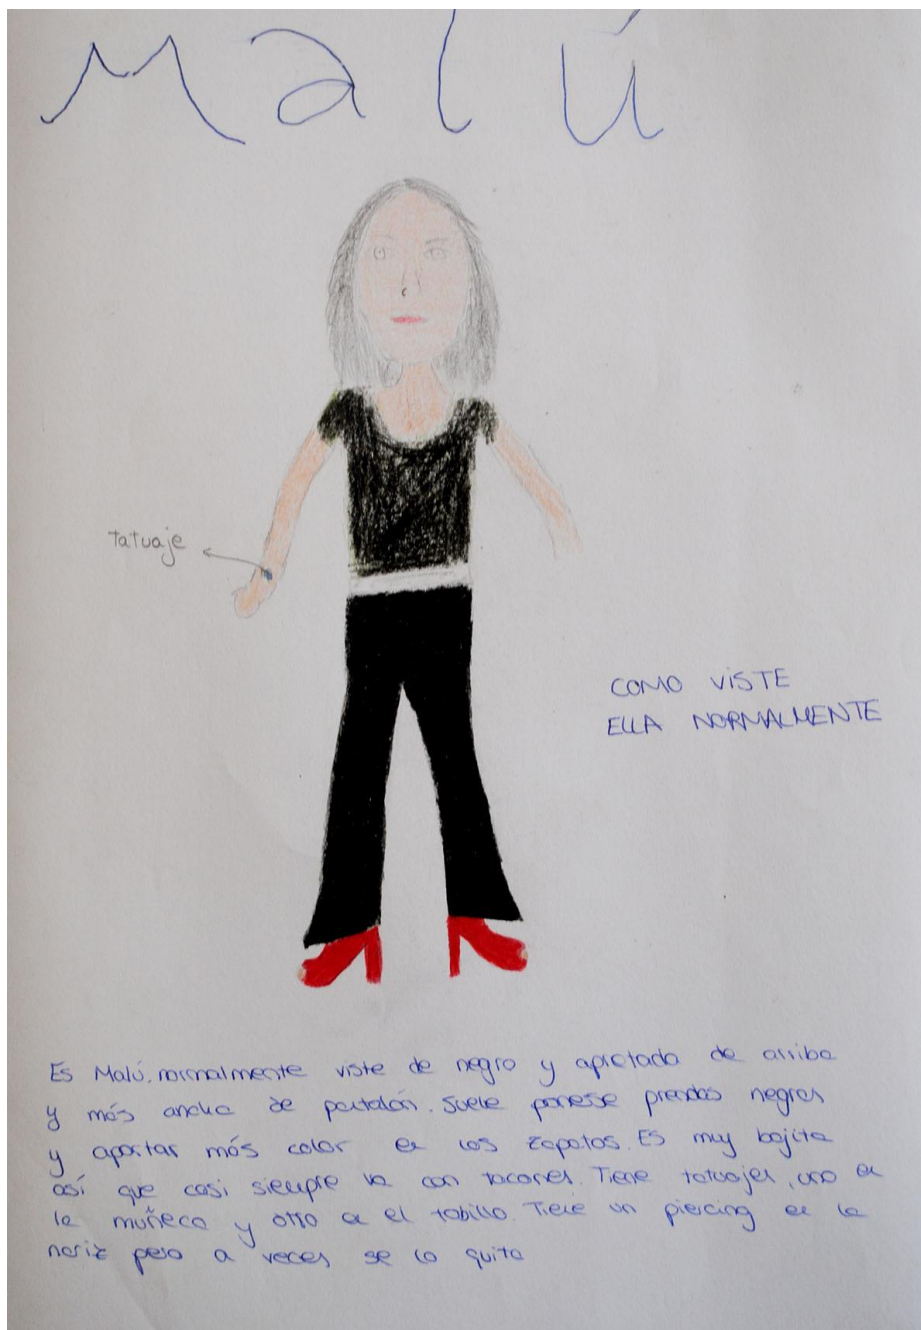 Malú
tatuaje
COMO VISTE
ELLA NORMALMENTE
Es Malú. normalmente viste de negro y apretado de arriba
y más ancho de pantalón. Suele ponerse prendas negras
y aportar más color en los zapatos. Es muy bajita
así que casi siempre va con tacones. Tiene tatuajes, uno en
la muñeca y otro en el tobillo. Tiene un piercing en la
nariz pero a veces se lo quita